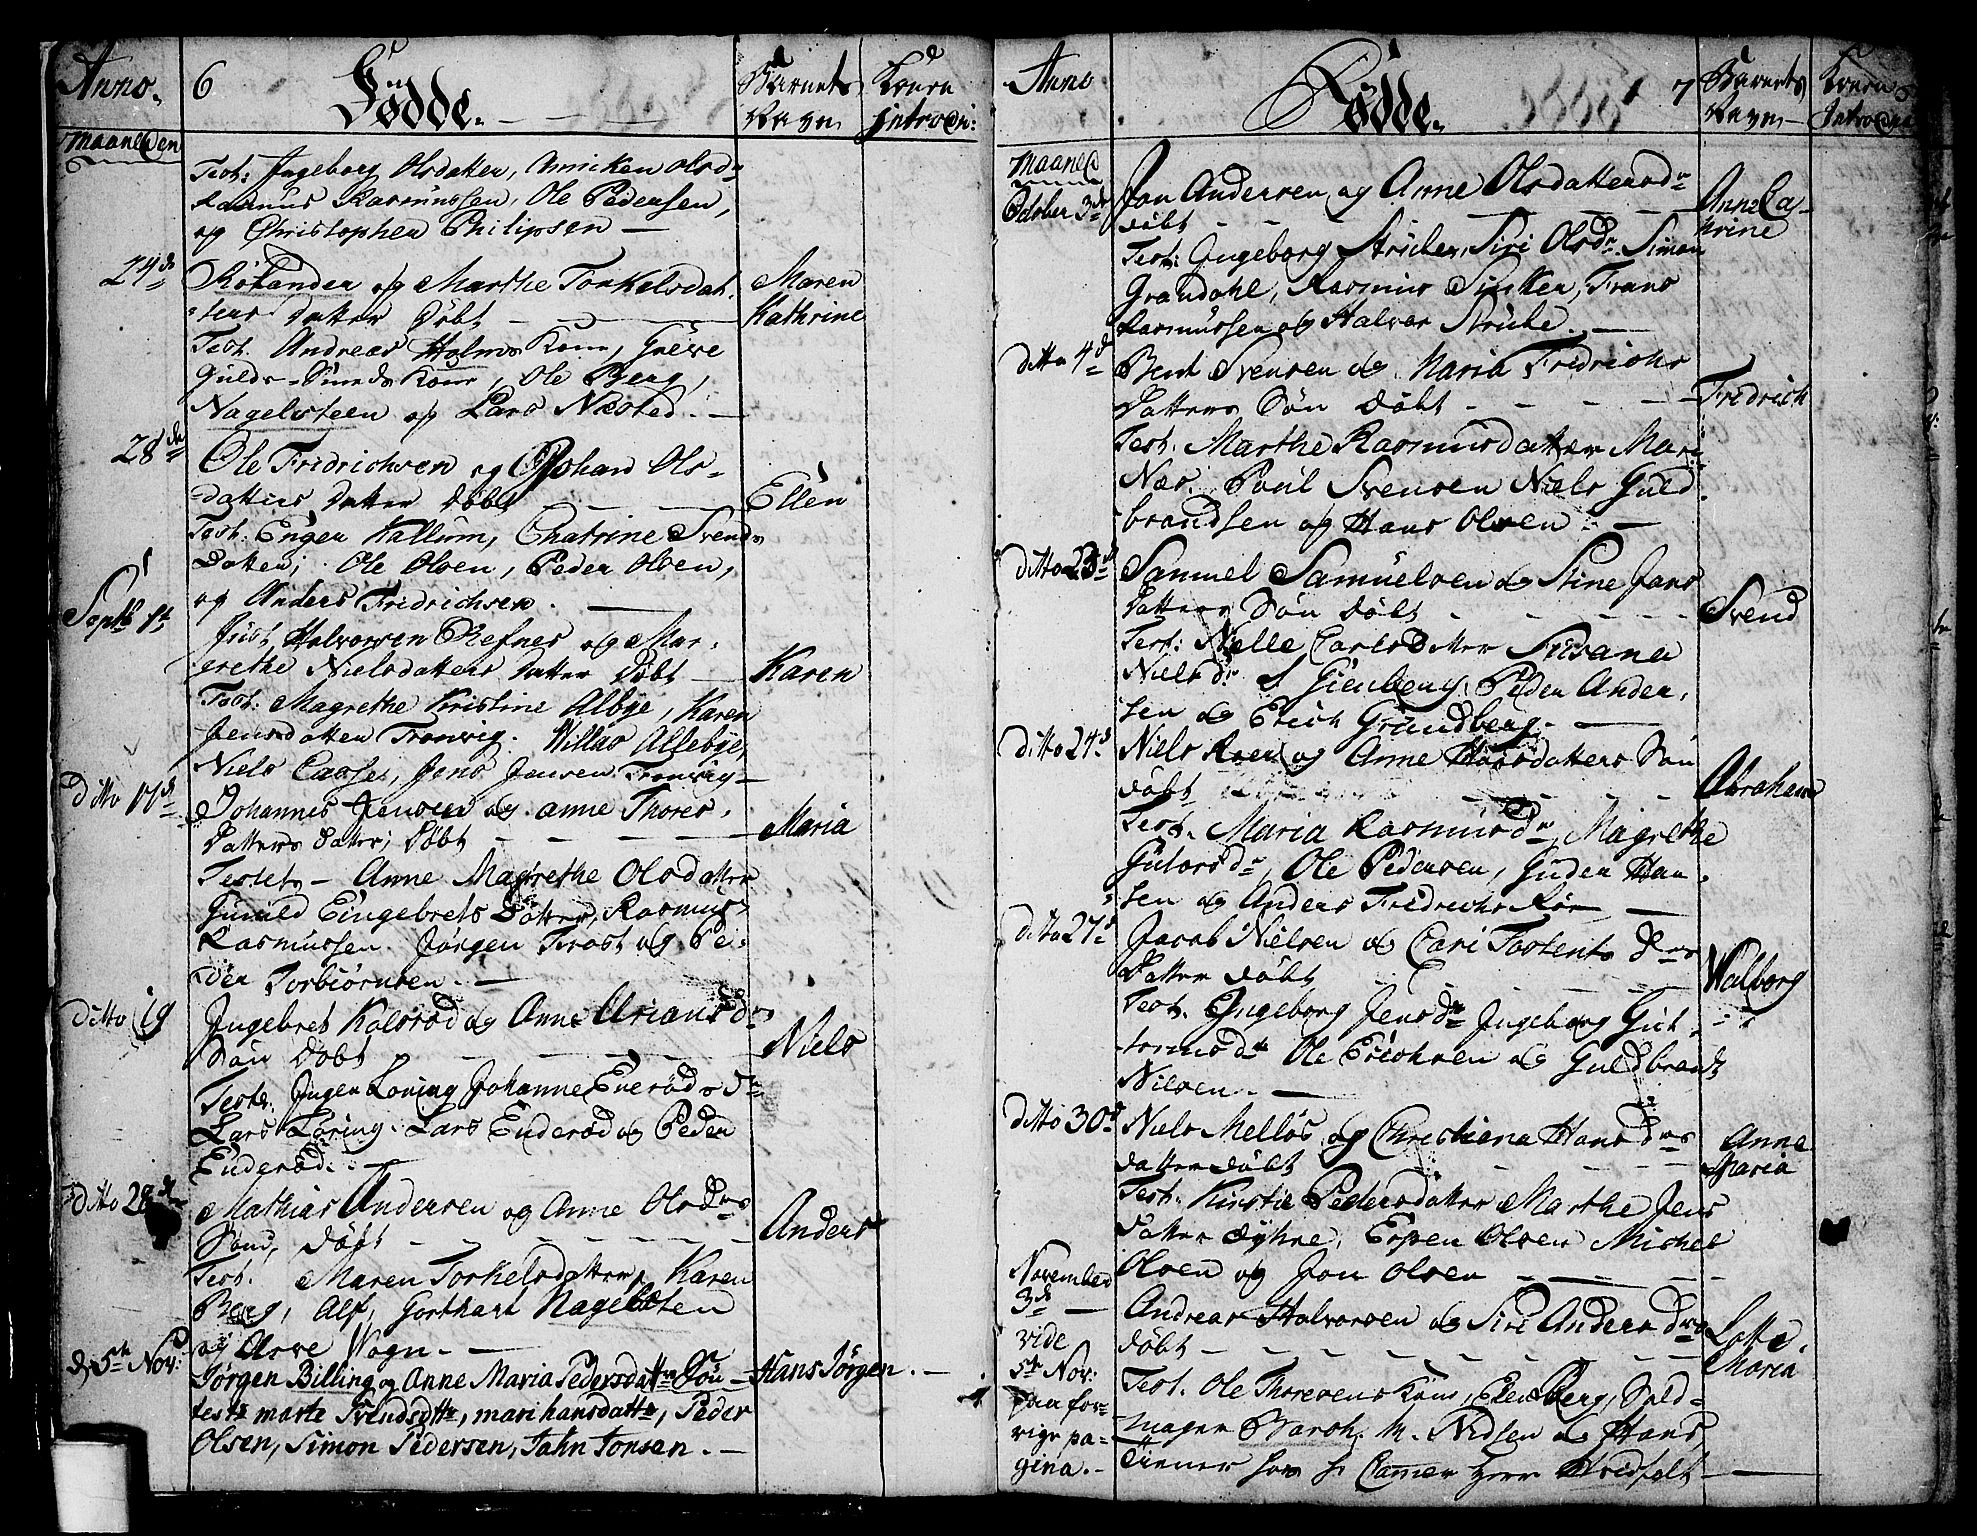 Anno. 6 Fødde. Barnets Navn Konen introdu:
Maaneden
Test: Ingeborg Olsdatter, Anniken Olsdr
Rasmus Rasmussen, Ole Pedersen,
og Christopher Philipsen —
24de Rolander og Marthe Torkelsdat- Maren
ters Datter Døbt — Kathrine
Test. Andreas Holms Kone, Greve
Guld-Smeds Kone, Ole Berg,
Nagelsteen og Lars Næsted. —
28de Ole Fridrichsen og Johan Ols-
datters Datter Døbt — Ellen
Test: Engen Kallum, Chatrine Svends
Datter, Ole Olsen, Peder Olsen,
og Anders Fridrichsen. —
Septb 1te Just Halvorsen Refnes og Mar-
grethe Nielsdatters Datter Døbt — Karen
Test: Magrethe Kristine Albye, Karen
Jensdatter Tronvig. Willas Allebye,
Niels Jens Jensen Tronvig —
Ditto 17de Johannes Jensen og Anne Thores-
Datters Datter, Døbt — Maria
Testes — Anne Magrethe Olsdatter
Gunild Eingebrets Datter, Rasmus
Rasmussen Jørgen Trost og Pe-
der Torbiørnsen. —
Ditto 19 Ingebret Kalsrød og Anne Ariansdr
Søn Døbt — Niels
Teste. Inger Loring Johanne Enerøds Dr
Lars Loring. Lars Enderød og Peder
Enderød. —
Ditto 28de Mathias Andersen og Anne Olsdrs
Sønd, Døbt — Anders
Test. Maren Torkelsdatter, Karen
Berg, Alf, Gorthart Nagelsten
og Arve Vogn. —
d. 5te Nov: Jørgen Billing og Anne Maria Pedersdattr Søn — Hans Jørgen. —
teste marte Svendsdttr, mari hansdattr, Peder
Olsen, Simon Pedersen, Jahn Jonsen. —
Anno Fødde. 7 Barnets Navn — Konens Introdu
Maaned
October 3de Jon Andersen og Anne Olsdattersdr Anne Ca-
Døbt — trine
Test: Ingeborg Striches, Siri Olsdr. Simon
Grandahl, Rasmus Sinken, Frans
Rasmussen og Halvor Striche. —
Ditto 4de Bent Svensen og Maria Fredrichs
Datters Søn Døbt — Fridrich
Test. Marthe Rasmusdatter Mari
Næs. Poul Svensen Niels Guld
brandsen og Hans Olsen —
Ditto 23de Samuel Samuelsen og Stine Jans
Datters Søn Døbt — Svend
Test: Nille Carlsdatter Susana
Nielsdr S Gienberg, Peder Ander-
sen og Erich Grundberg. —
Ditto 24de Niels Roer og Anne Hansdatters Søn
Døbt — Abraham
Test. Maria Rasmusdr, Magrethe
Gutorsdr, Ole Pedersen, Guder Han-
sen og Anders Fredrichs Rør —
Ditto 27de Jacob Nielsen og Cari Tostents Drs
Datter Døbt — Walborg
Test. Ingeborg Jensdr Ingeborg Gut-
tormsdr Ole Erichsen og Guldbrandt
Nielsen. —
Ditto 30de Niels Melløs og Christiena Hans Drs Anne
Datter Døbt — Maria
Test. Kirstie Pedersdatter Marthe Jens
Datter Dyhre, Espen Olsen Michel
Olsen og Jon Olsen —
November
3de — Andreas Halvorsen og Siri Anders Drs Lotte
vide Døbt — Maria
5te Nov: Test. Ole Thoresens Kone, Elen Berg, Sald-
paa for- mager Baroh. M. Nielsen og Hans
rige pa- Tienner hos Hr Cammer Herr
gina. —